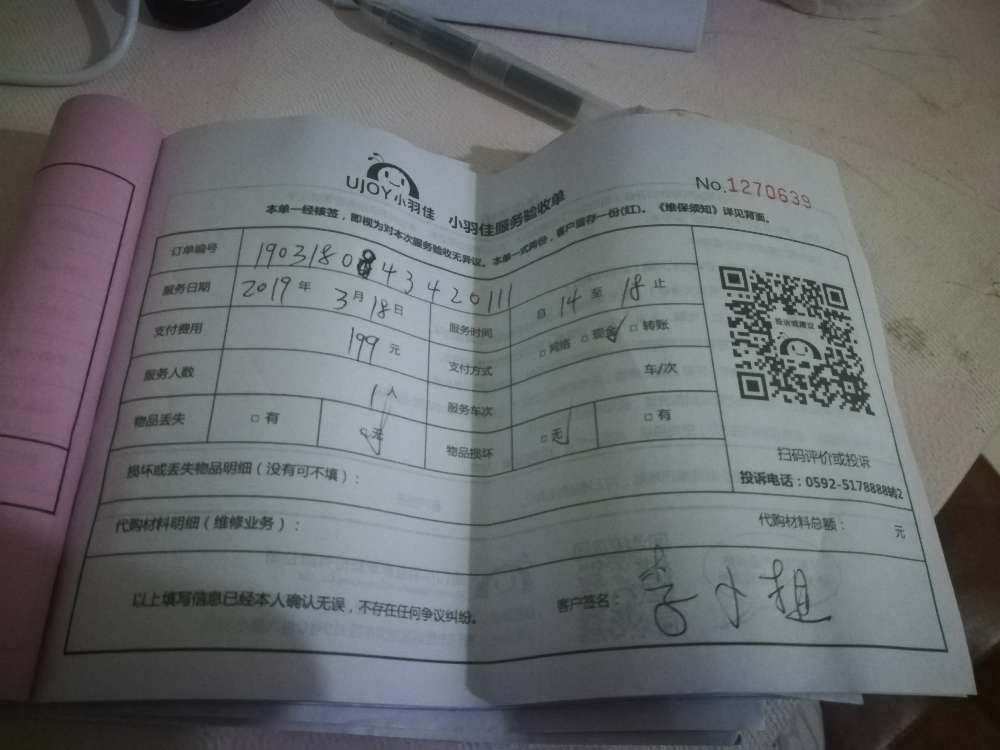 UJOY小羽佳 小羽佳服务验收单
No.1270639
本单一经核签，即视为对本次服务验收无异议。本单一式两份，客户留存一份(红)。《维保须知》详见背面。
订单编号 190318084342011​1
服务日期 2019 年 3 月 18 日 服务时间 自 14 至 18 止
支付费用 199 元 支付方式 □ 网络 □ 现金 □ 转账
服务人数 1 人 服务车次 车/次
物品丢失 □ 有 □ 无 物品损坏 □ 无 □ 有
投诉或建议
扫码评价或投诉
投诉电话：0592-5178888转2
损坏或丢失物品明细（没有可不填）：
代购材料明细（维修业务）： 代购材料总额： 元
以上填写信息已经本人确认无误，不存在任何争议纠纷。 客户签名： 小姐